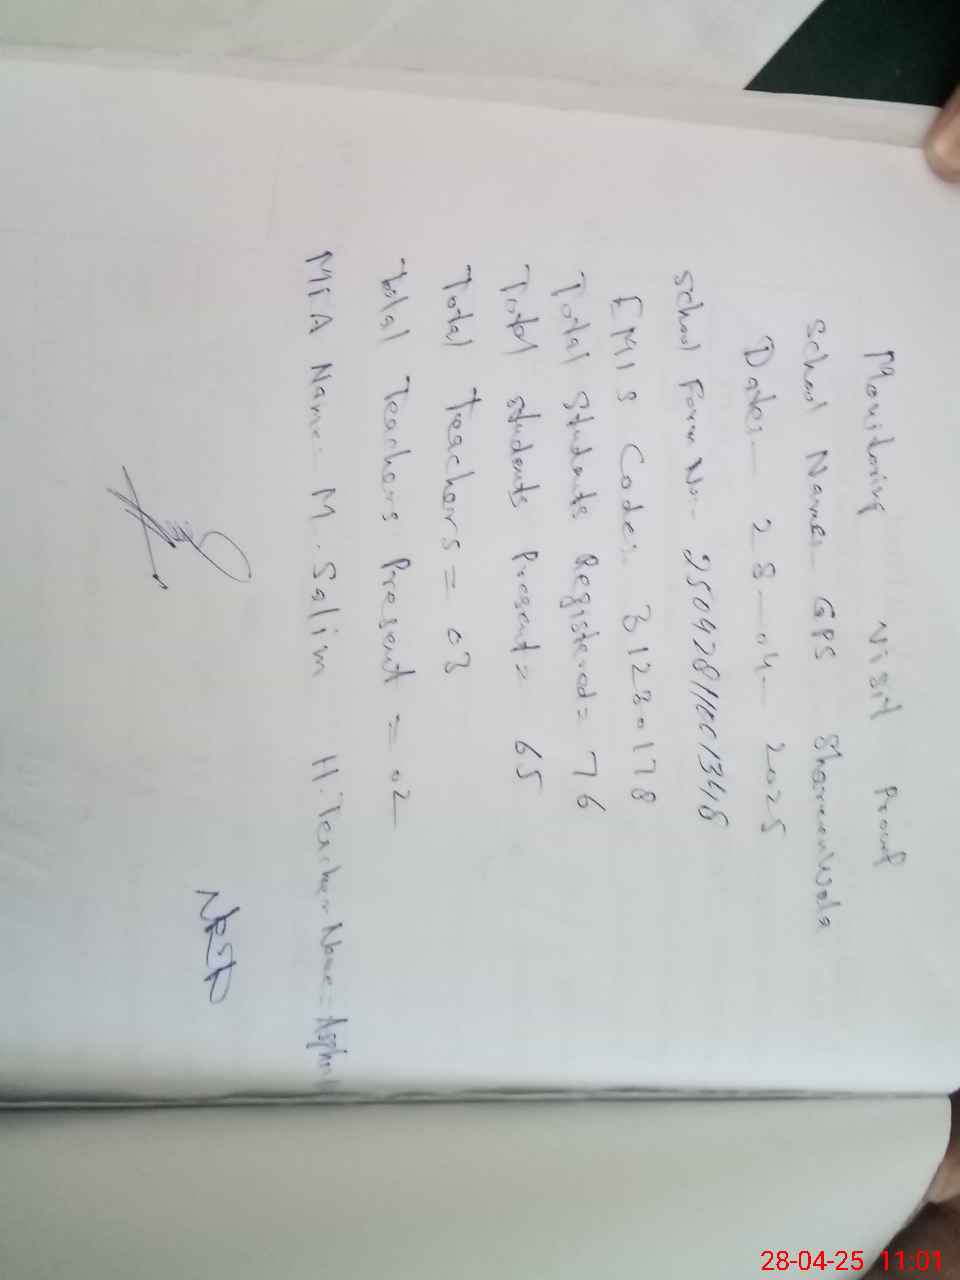 Monitoring Visit Proof
School Name:- GPS Shareenwala
Date:- 28-04-2025
School Form No:- 25042811001348
EMIS Code:- 31230178
Total Students Registered = 76
Total Students Present = 65
Total Teachers = 03
Total Teachers Present = 02
MEA Name:- M. Salim H. Teacher Name =
28-04-25 11:01